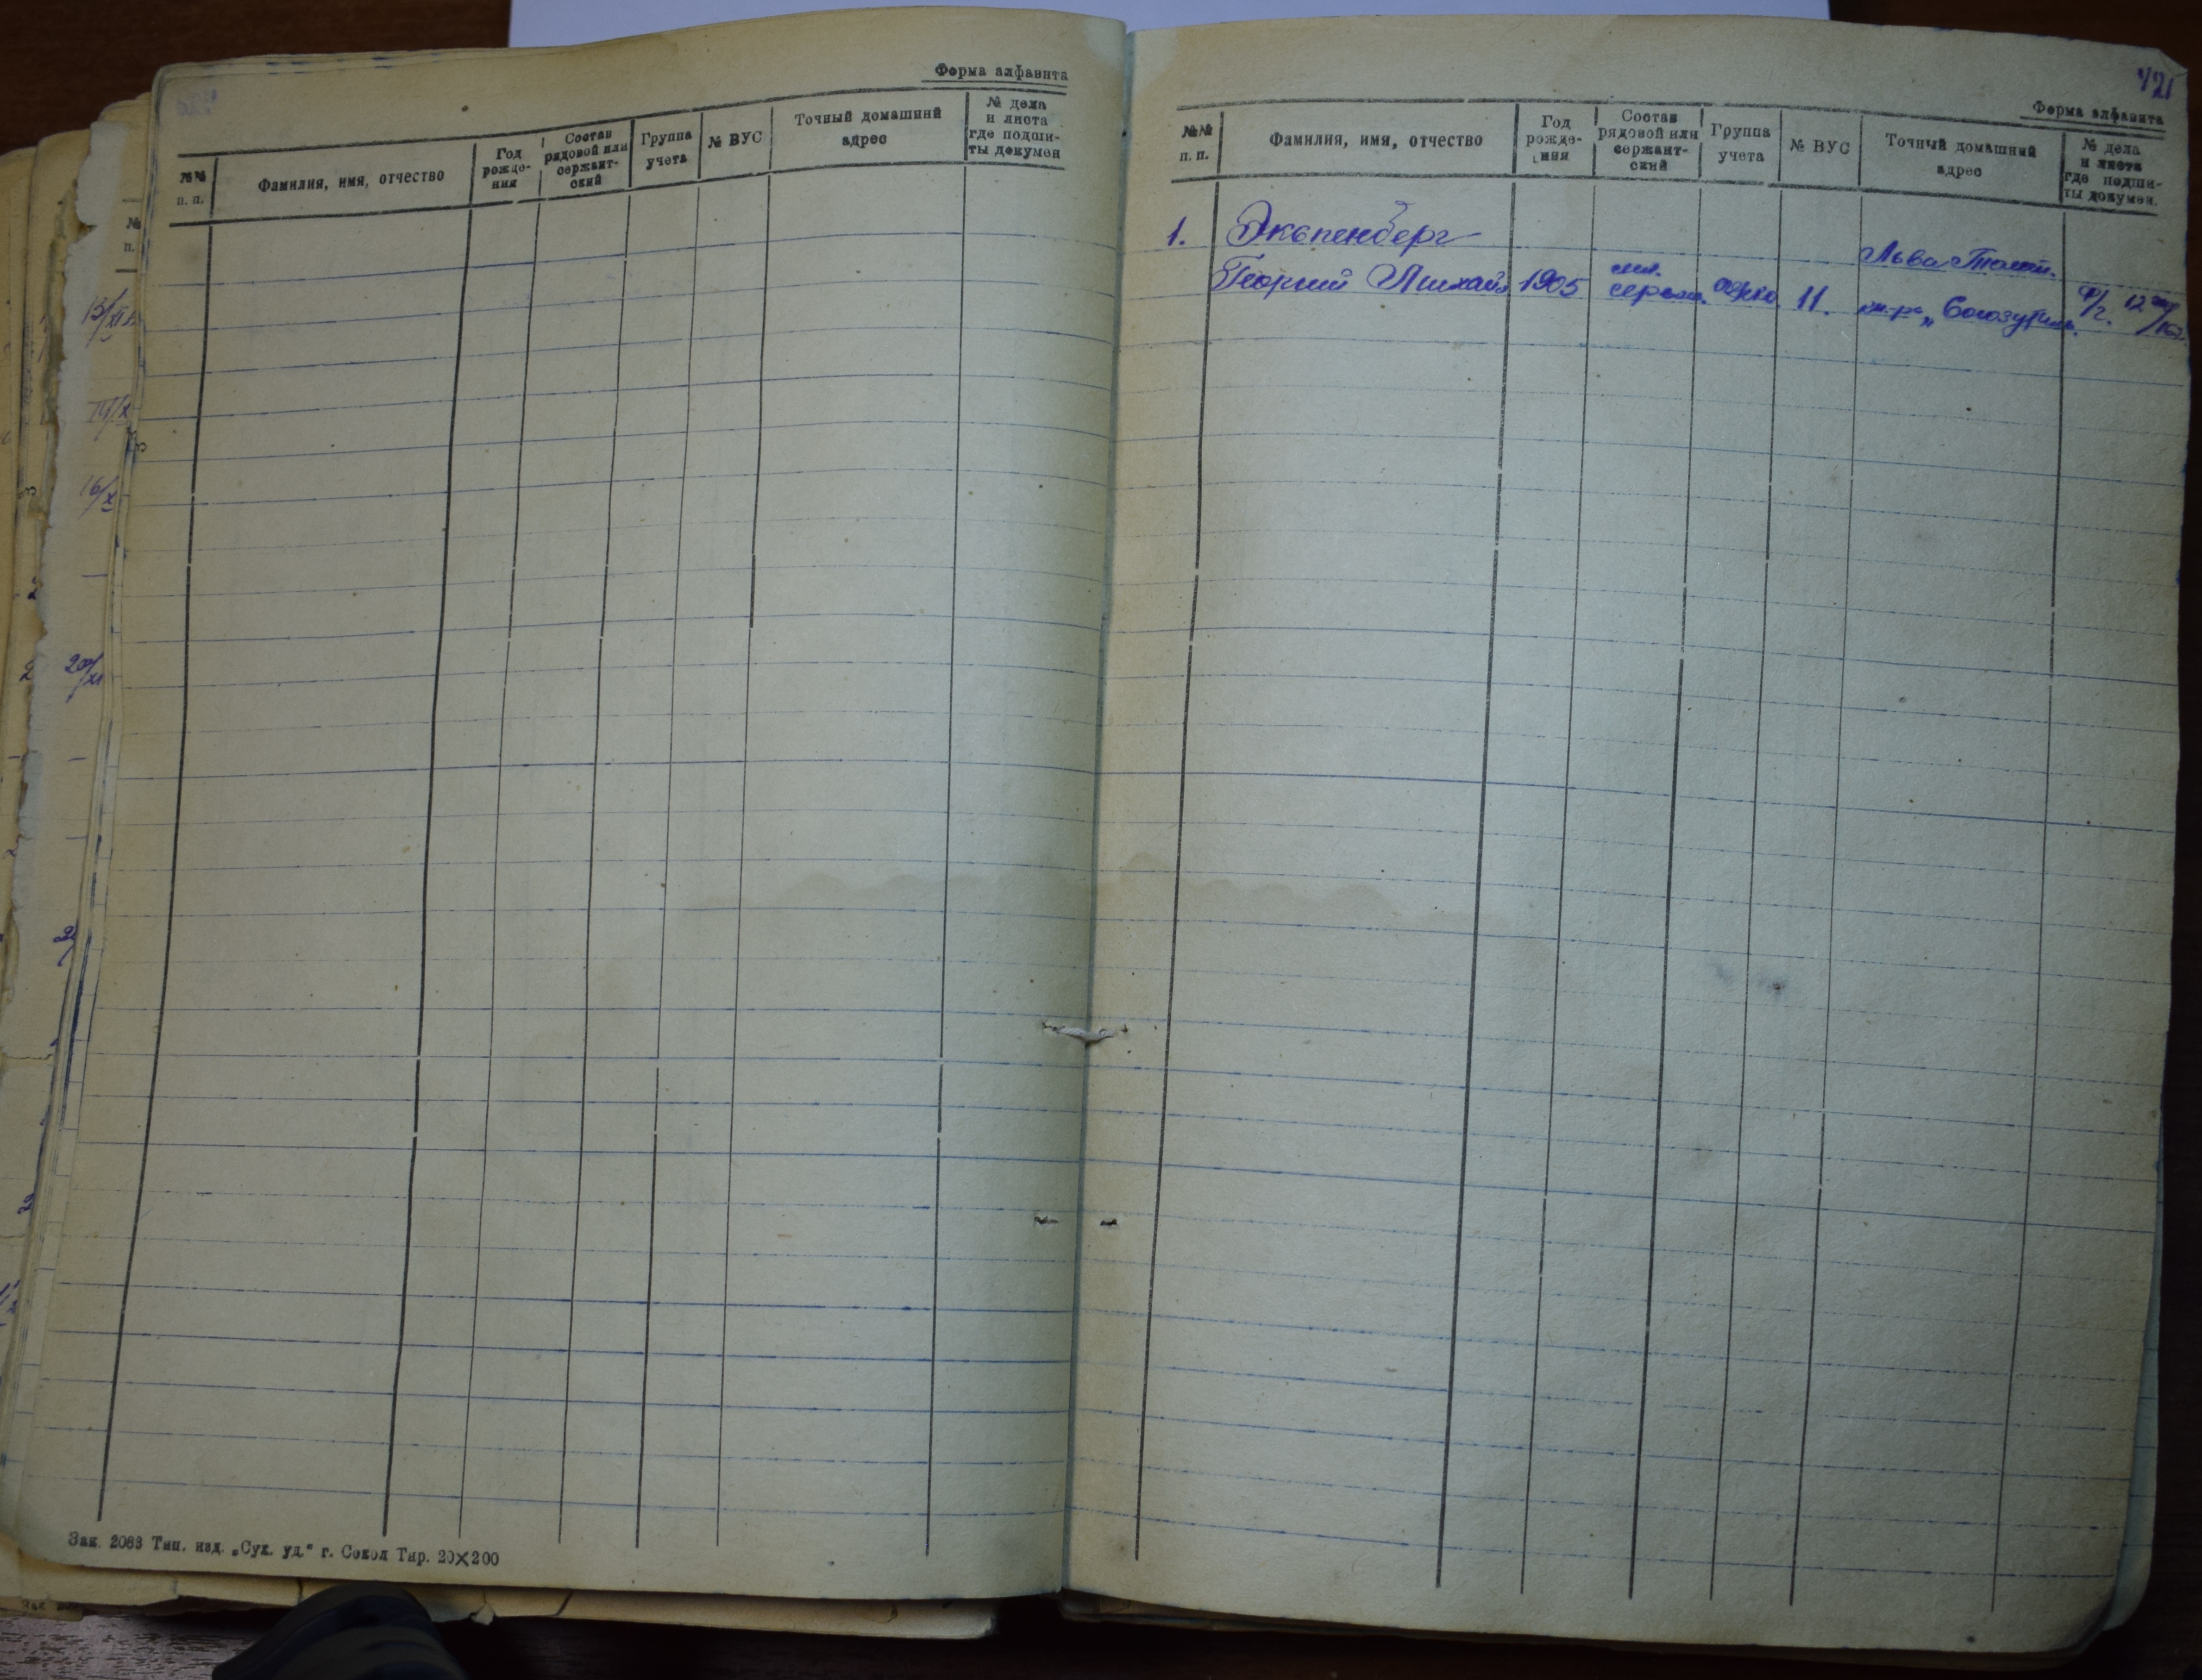 Форма алфавита
№№ п. п.
Фамилия, имя, отчество
Год рожде- ния
Состав рядовой или сержант- ский
Группа учета
№ ВУС
Точный домашний адрес
№ дела и листа где подши- ты докумен
Зак. 2083 Тип. изд. „Сух. уд.“ г. Сокол Тир. 20×200
421
Форма алфавита
№№ п. п.
Фамилия, имя, отчество
Год рожде- ния
Состав рядовой или сержант- ский
Группа учета
№ ВУС
Точный домашний адрес
№ дела и листа где подши- ты докумен.
1. Экспенберг
Льва Толст.
Георгий Михайл 1905 сержа. 11. „Союзутиль.
13/XI
16/X
20/XI